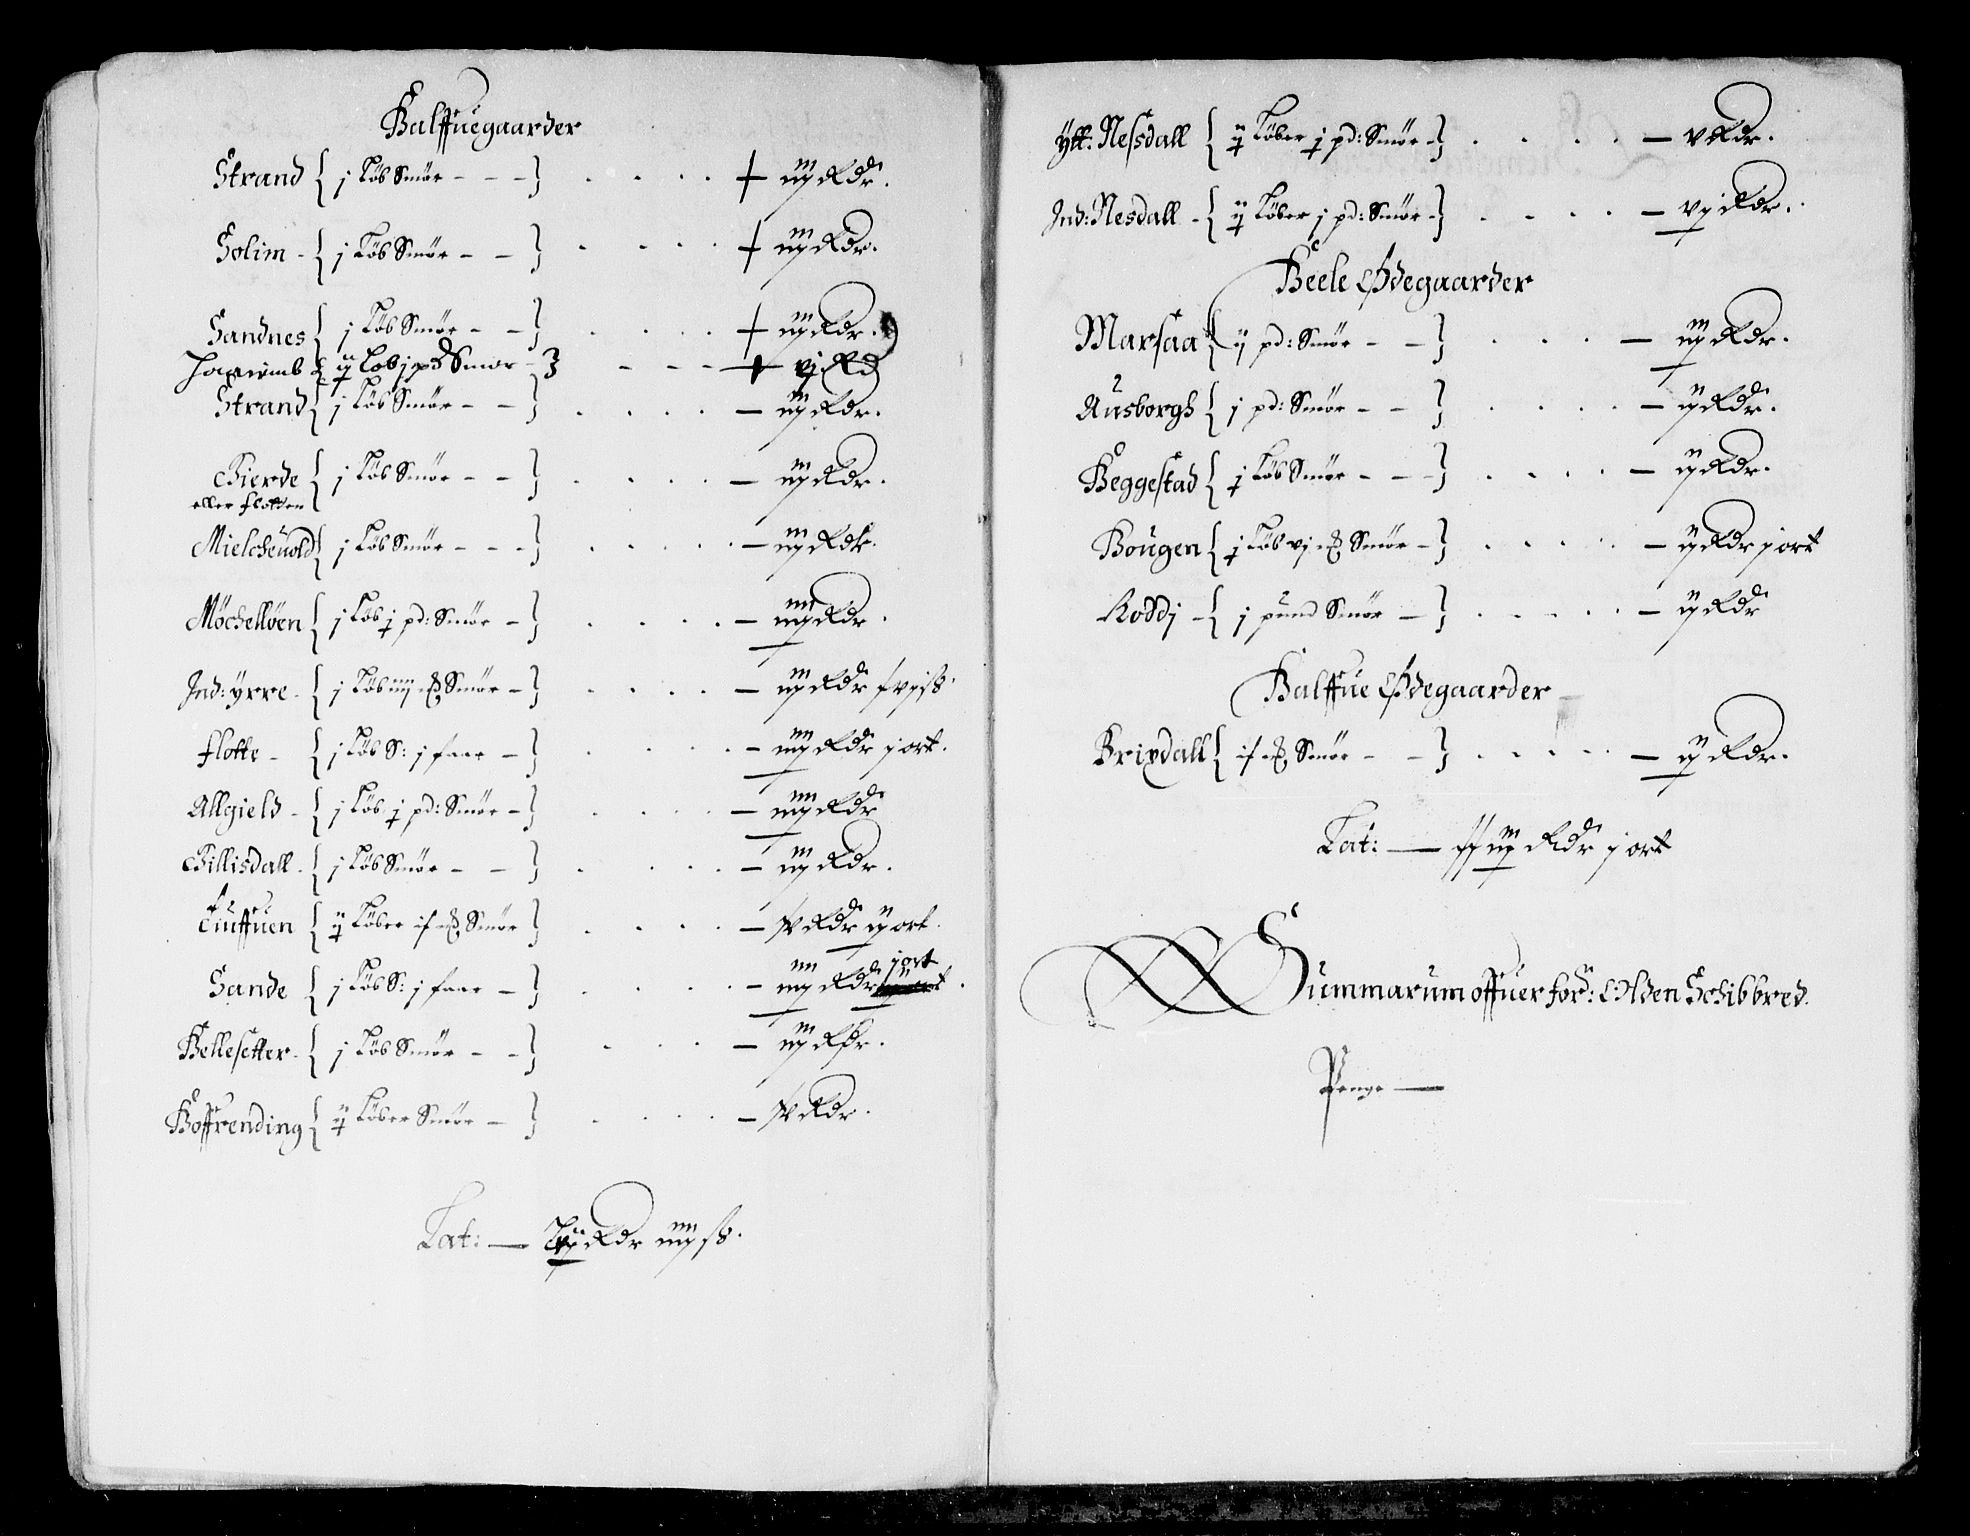 Halffuegaarder
Strand { j Løb Smør - - - } . . . . + iij Rdr.
Solim - { j Løb Smør - - } . . . . + iij Rdr.
Sandnes { j Løb Smør - - } . . . . + iij Rdr.
ij Løb j pd Smør - } - - - vj Rd
Strand { j Løb Smør - - } . . . . — iij Rdr.
Gierde { j Løb Smør - - } . . . . — iij Rdr.
eller Flotten
Mielcheuold { j Løb Smør - - - } . . . . — iij Rdr.
Møchelløen { j Løb j pd: Smør - } . . . . — iiij Rdr.
Ind: Yrre - { j Løb iiij Smør - } . . . . — iij Rdr
Flotte - { j Løb S: j faar - } . . . — iiij Rdr j ort.
Allgield - { j Løb j pd: Smør - } . . . — iiij Rdr
Gillisdall - { j Løb Smør - - } . . . . — iij Rdr.
Tiuffuen { ij Løber Smør } . . . . — Rdr ij ort.
Sande { j Løb S: j faar - } . . . . — iiij Rdr j ort
Hellesetter - { j Løb Smør - - } . . . — iij Rdr.
Hoffrending { ij Løber Smør - } . . . — Rdr.
Lat: — Rdr iiij ß.
Ytt: Nessdall { ij Løber j pd: Smør - } . . . . — v Rdr.
Ind: Nesdall - { ij Løber j pd: Smør - } . . . . — vj Rdr.
Heele Ødegaarder
Marsaa { ij pd: Smør - - } . . . — iij Rdr.
Ausborgh { j pd: Smør - - } . . . . — ij Rdr.
Heggestad { j Løb Smør - - - } . . . — ij Rdr.
Hougen { j Løb vj Smør - } . . . . — ij Rdr j ort
Roddj - { j pund Smør — } . . . . — ij Rdr
Halffue Ødegaarder
Brixdall { Smør - - } . . . . — ij Rdr.
Lat: — Rdr j ort
Summarum offuer for: Olden Schibbred.
Penge —